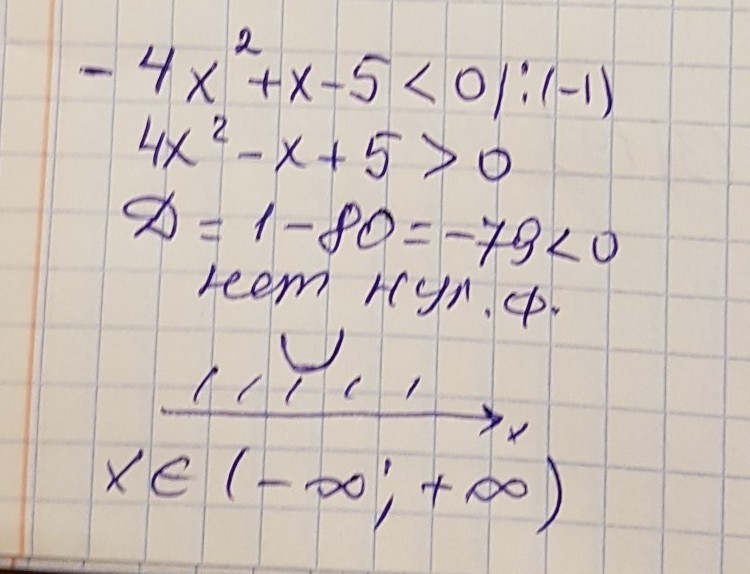 -4x²+x-5<0|:(-1)
4x²-x+5>0
D=1-80=-79<0
нет нул. ф.
x
x∈(-∞;+∞)